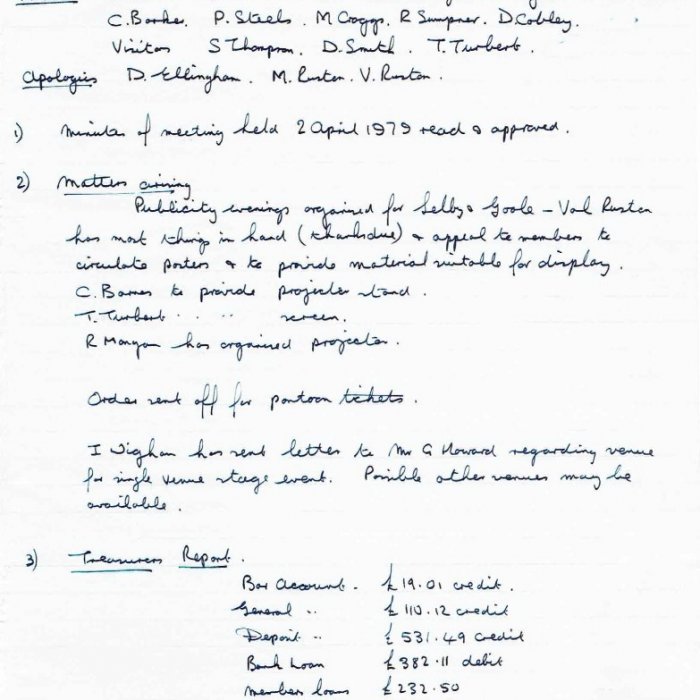 C. Barnes. P. Steels. M Coggs. R Sumpner. D. Cobley.
Visitors S Thompson. D. Smith. T. Turbert.
Apologies D. Ellingham. M. Ruston. V. Ruston.
1) Minutes of meeting held 2 April 1979 read & approved.
2) Matters arising
Publicity evenings organised for Selby & Goole – Val Ruston
has most things in hand (thanks due) & appeal to members to
circulate posters & to provide material suitable for display.
C. Barnes to provide projector stand.
T. Turbert . . " screen.
R Mangan has organised projector.
Order sent off for pontoon tickets.
I Wigham has sent letter to Mr G Howard regarding venue
for single venue stage event. Possible other venues may be
available.
3) Treasurers Report.
Bar Account. £19.01 credit.
General " £110.12 credit
Deposit " £531.49 credit
Bank Loan £382.11 debit
Members loans £232.50